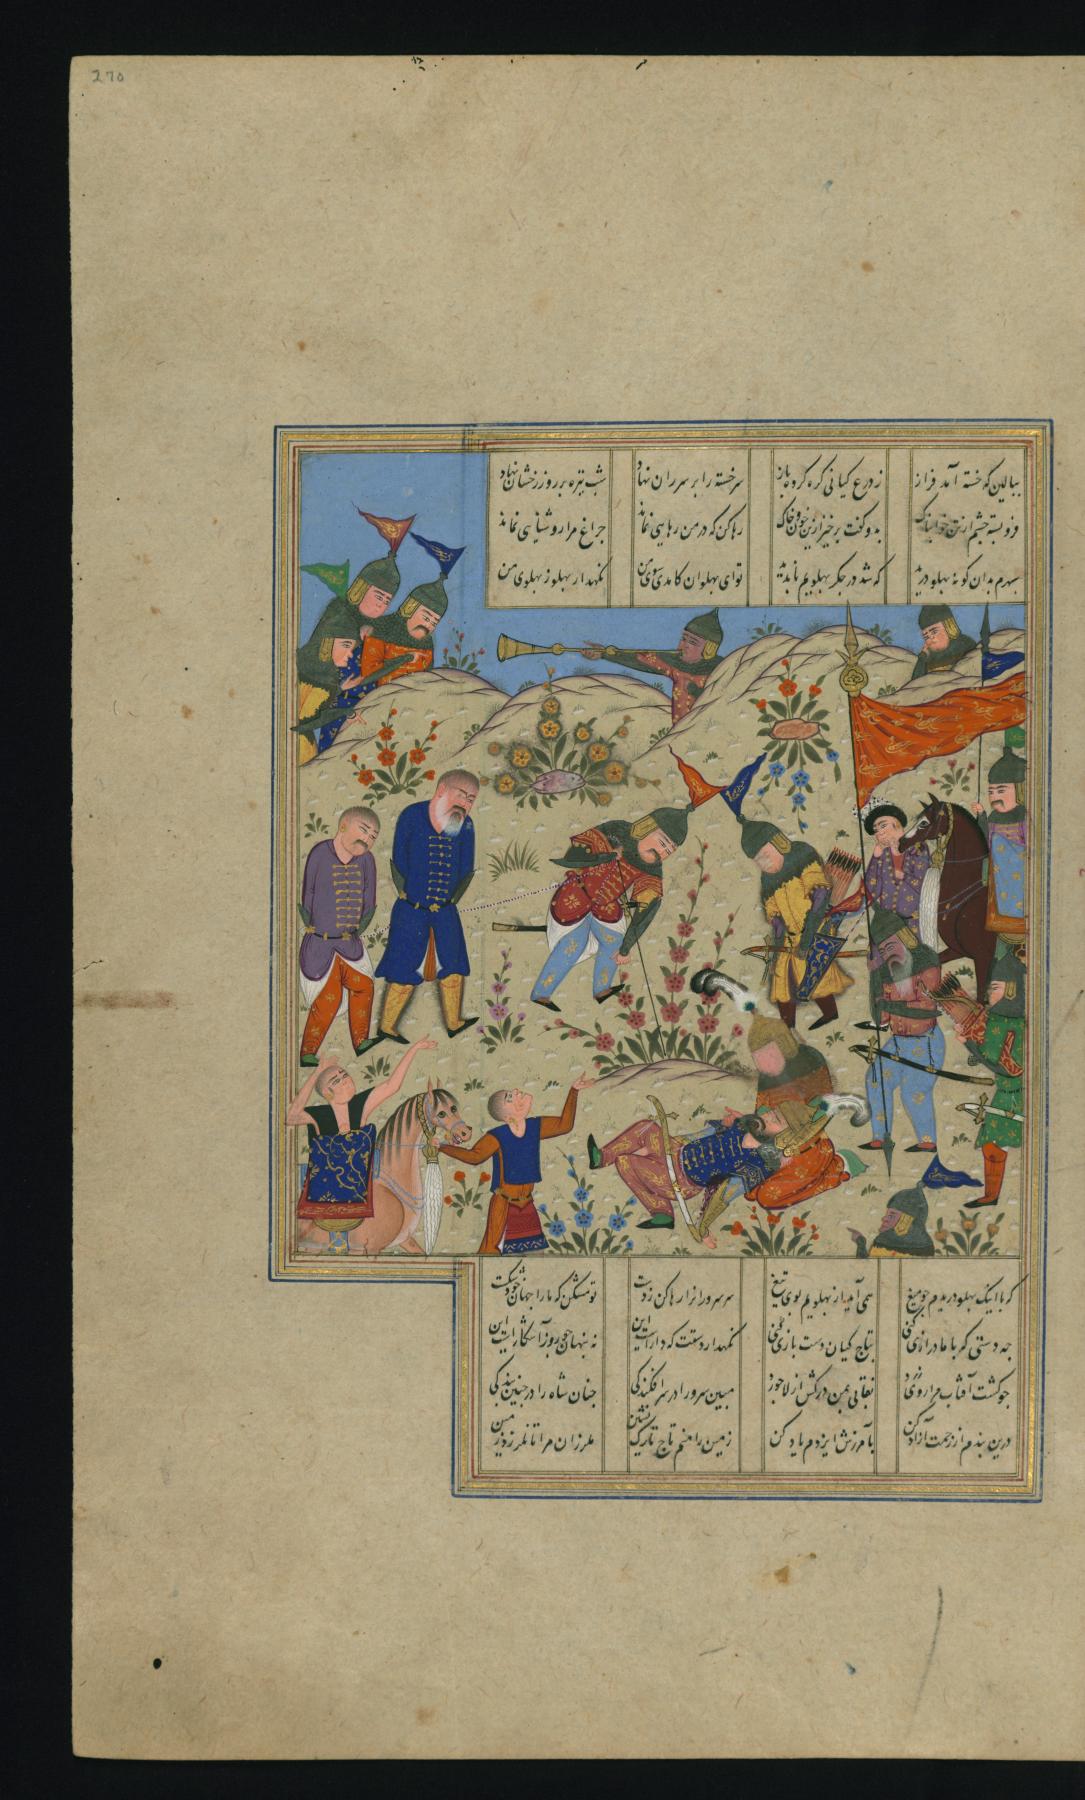 270
ببالین که خسته آمد فراز ز درع کیانی گره کرد باز سر خسته را بر سر ران نهاد شب تیره بر روز رخشان نهاد
فرو بسته چشم از تن بدو گفت برخیز ازین خون و خاک رها کن که در من رهایی نماند چراغ مرا روشنایی نماند
سپهرم بدان گونه پهلو درید که شد در جگر پهلویم ناپدید توای پهلوان کامدی سوی من نگهدار پهلو ز پهلوی من
که با اینک پهلو دریدم چو میغ همی آید از پهلویم بوی تیغ سر سروران را رها کن ز دست تو مشکن که ما را جهان خود شکست
چه دستی که با ما درازی کنی بتاج کیان دست بازی کنی نگهدار دستت که داراست این نه پنهان چو روز آشکاراست این
چو گشت آفتاب مرا روی زرد نقابی بمن درکش از لاجورد مبین سرو را در سرافکندگی چنان شاه را در چنین بندگی
درین بندم از رحمت آزاد کن بآمرزش ایزدم یاد کن زمین را منم تاج تارک نشین ملرزان مرا تا نلرزد زمین